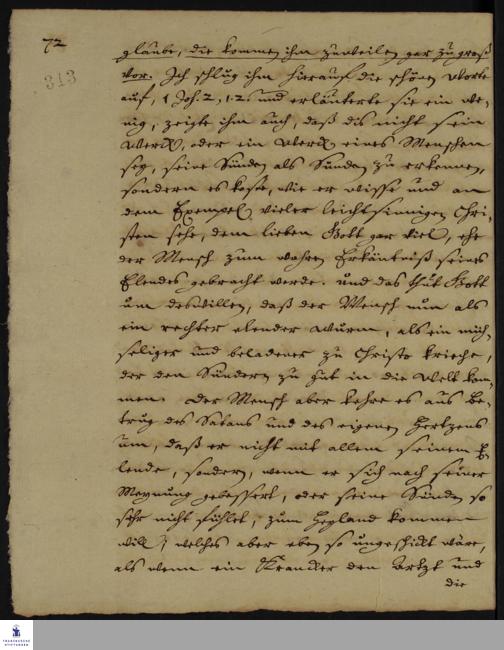 72
313
glaube, die kommen ihm zuweilen gar zu groß
vor. Ich schlug ihm hierauf die schönen Worte
auf, 1 Joh. 2, 1. 2. und erläuterte sie ein we-
nig, zeigte ihm auch, daß dis nicht sein
Werck, oder ein Werck eines Menschen
sey, seine Sünden als Sünden zu erkennen,
sondern es koste, wie er wisse und an
dem Exempel vieler leichtsinnigen Chri-
sten sehe, dem lieben Gott gar viel, ehe
der Mensch zum wahren Erkäntniß seines
Elendes gebracht werde. Und das thut Gott
um deswillen, daß der Mensch nun als
ein rechter elender Wurm, als ein müh-
seliger und beladener zu Christo krieche,
der den Sündern zu gut in die Welt kom-
men. Der Mensch aber kehre es aus Be-
trug des Satans und des eigenen Hertzens
um, daß er nicht mit allem seinem E-
lende, sondern, wenn er sich nach seiner
Meynung gebessert, oder seine Sünden so
sehr nicht fühlet, zum Heyland kommen
will, welches aber eben so ungeschickt wäre,
als wenn ein Krancker den Artzt und
die
FRANCKESCHE
STIFTUNGEN